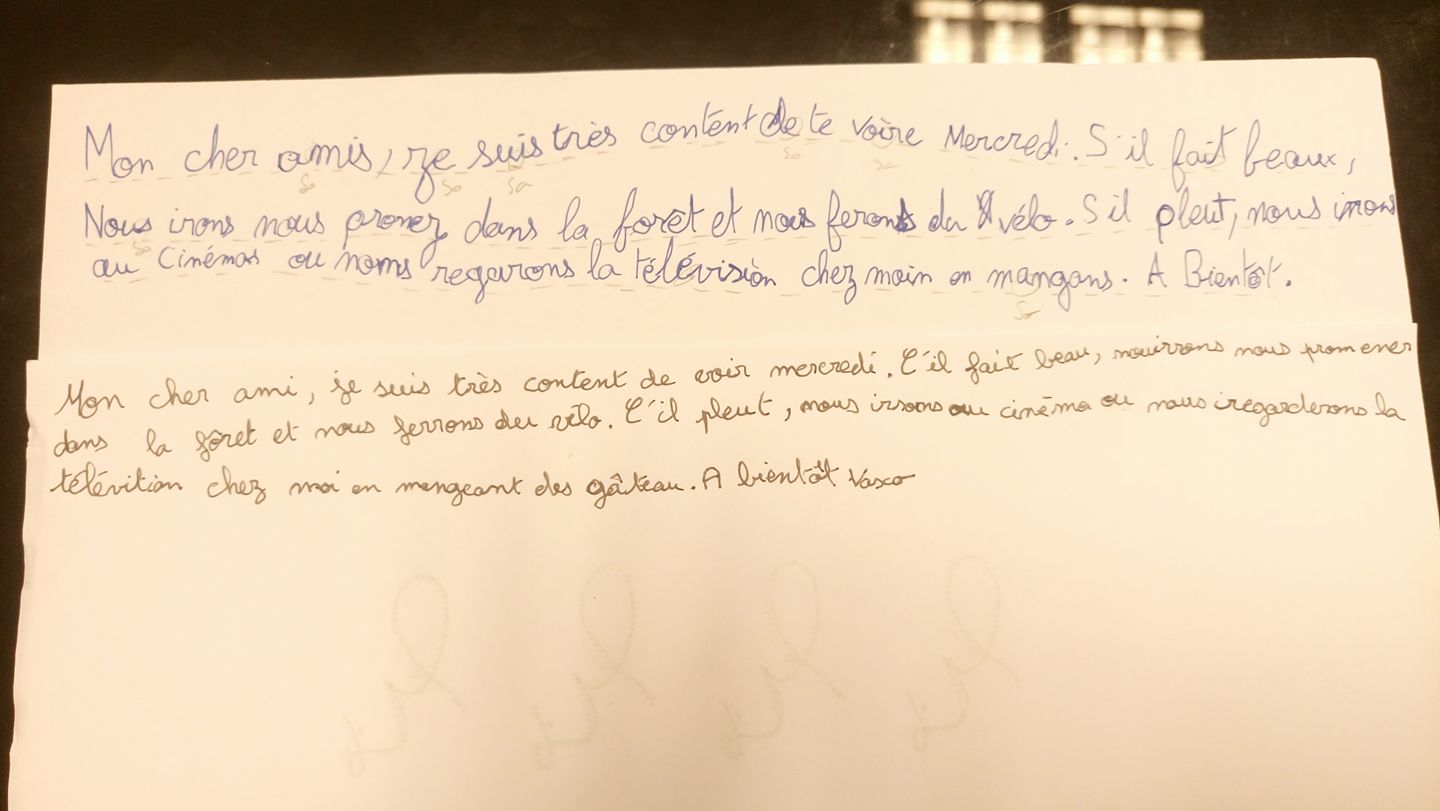 Mon cher amis, je suis très content de te voire Mercredi. S'il fait beaux,
Nous irons nous promez dans la forêt et nous ferons du vélo. S'il pleut, nous irons
au Cinémas ou noms regarons la télévision chez moin en mangans. A Bientôt.
Mon cher ami, je suis très content de voir mercredi. C'il fait beau, nouirrons nous promener
dans la fôret et nous ferrons du vélo. C'il pleut, nous irsons au cinéma ou nous regarderons la
télévition chez moi en mengeant des gâteau. A bientôt Vasco